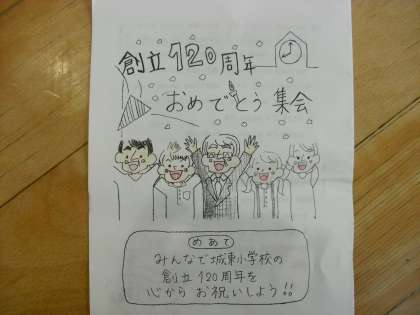 創立120周年
おめでとう集会
めあて
みんなで城東小学校の
創立120周年を
心からお祝いしよう!!